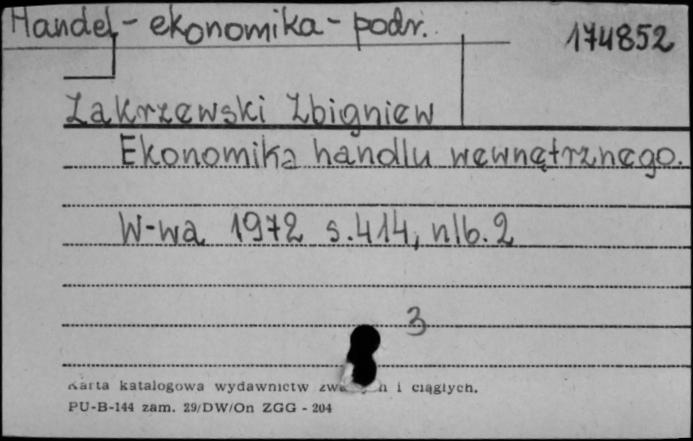 Handel - ekonomika - podr. 174852
Zakrzewski Zbigniew
Ekonomika handlu wewnętrznego.
W-wa 1972 s. 414, nlb. 2
3
Karta katalogowa wydawnictw i ciągłych.
PU-B-144 zam. 29/DW/On ZGG - 204